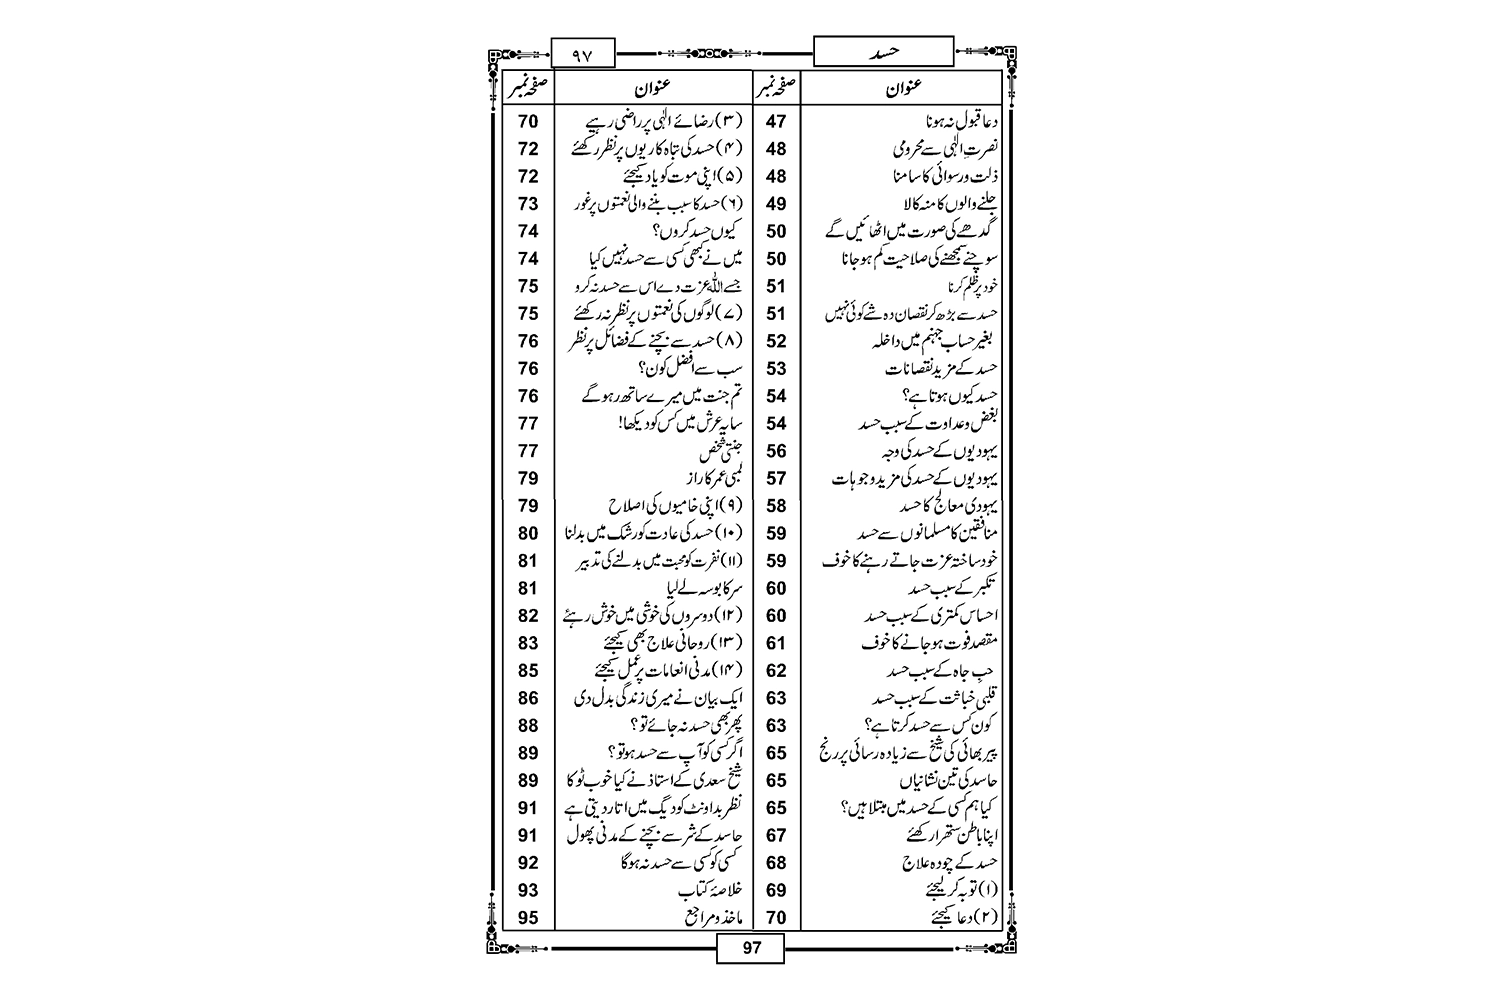 حسد
۹۷
عنوان صفحہ نمبر
دعا قبول نہ ہونا 47
نصرتِ الٰہی سے محرومی 48
ذلت ورسوائی کا سامنا 48
جلنے والوں کا منہ کالا 49
گدھے کی صورت میں اٹھائیں گے 50
سوچنے سمجھنے کی صلاحیت کم ہو جانا 50
خود پر ظلم کرنا 51
حسد سے بڑھ کر نقصان دہ شے کوئی نہیں 51
بغیر حساب جہنم میں داخلہ 52
حسد کے مزید نقصانات 53
حسد کیوں ہوتا ہے؟ 54
بغض وعداوت کے سبب حسد 54
یہودیوں کے حسد کی وجہ 56
یہودیوں کے حسد کی مزید وجوہات 57
یہودی معالج کا حسد 58
منافقین کا مسلمانوں سے حسد 59
خود ساختہ عزت جاتے رہنے کا خوف 59
تکبر کے سبب حسد 60
احساس کمتری کے سبب حسد 60
مقصد فوت ہو جانے کا خوف 61
حبِ جاہ کے سبب حسد 62
قلبی خباثت کے سبب حسد 63
کون کس سے حسد کرتا ہے؟ 63
پیر بھائی کی شیخ سے زیادہ رسائی پر رنج 65
حاسد کی تین نشانیاں 65
کیا ہم کسی کے حسد میں مبتلا ہیں؟ 65
اپنا باطن ستھرا رکھئے 67
حسد کے چودہ علاج 68
(۱) توبہ کر لیجئے 69
(۲) دعا کیجئے 70
عنوان صفحہ نمبر
(۳) رضائے الٰہی پر راضی رہیے 70
(۴) حسد کی تباہ کاریوں پر نظر رکھئے 72
(۵) اپنی موت کو یاد کیجئے 72
(۶) حسد کا سبب بننے والی نعمتوں پر غور 73
کیوں حسد کروں؟ 74
میں نے کبھی کسی سے حسد نہیں کیا 74
جسے اللہ عزت دے اس سے حسد نہ کرو 75
(۷) لوگوں کی نعمتوں پر نظر نہ رکھئے 75
(۸) حسد سے بچنے کے فضائل پر نظر 76
سب سے افضل کون؟ 76
تم جنت میں میرے ساتھ رہو گے 76
سایہ عرش میں کس کو دیکھا! 77
جنتی شخص 77
لمبی عمر کا راز 79
(۹) اپنی خامیوں کی اصلاح 79
(۱۰) حسد کی عادت کو رشک میں بدلنا 80
(۱۱) نفرت کو محبت میں بدلنے کی تدبیر 81
سر کا بوسہ لے لیا 81
(۱۲) دوسروں کی خوشی میں خوش رہئے 82
(۱۳) روحانی علاج بھی کیجئے 83
(۱۴) مدنی انعامات پر عمل کیجئے 85
ایک بیان نے میری زندگی بدل دی 86
پھر بھی حسد نہ جائے تو؟ 88
اگر کسی کو آپ سے حسد ہو تو؟ 89
شیخ سعدی کے استاذ نے کیا خوب ٹوکا 89
نظر بد اونٹ کو دیگ میں اتار دیتی ہے 91
حاسد کے شر سے بچنے کے مدنی پھول 91
کسی کو کسی سے حسد نہ ہوگا 92
خلاصۂ کتاب 93
ماخذ ومراجع 95
97